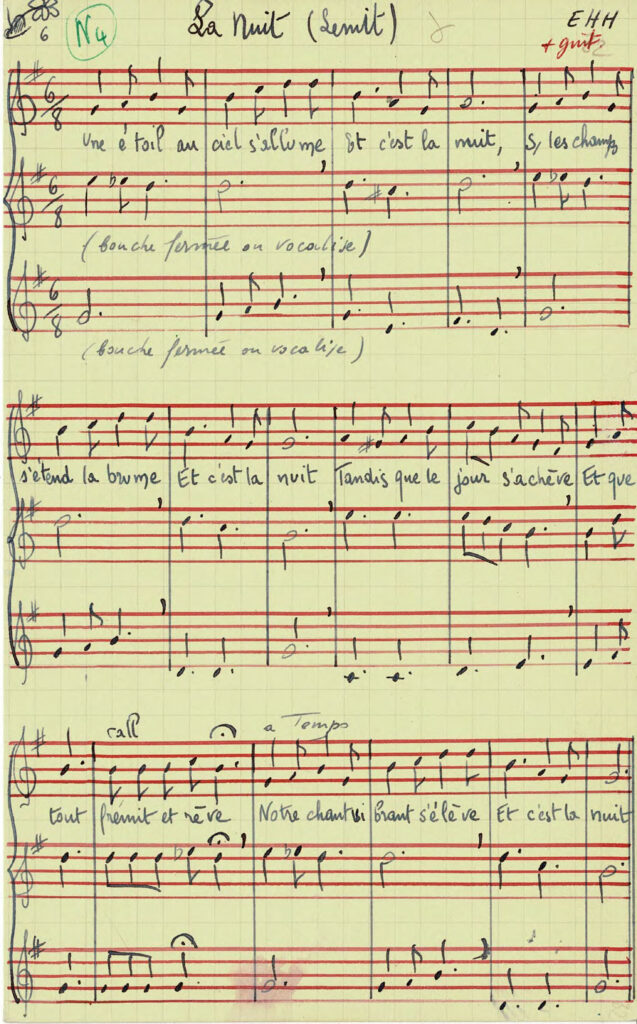 6 N4 La Nuit (Semit) EHH
+ guit
6/8
Une étoil au ciel s'allume Et c'est la nuit, S/ les champs
6/8
(bouche fermée ou vocalise)
6/8
(bouche fermée ou vocalise)
s'étend la brume Et c'est la nuit Tandis que le jour s'achève Et que
rall a Tempo
tout frémit et rêve Notre chant vi brant s'élève Et c'est la nuit